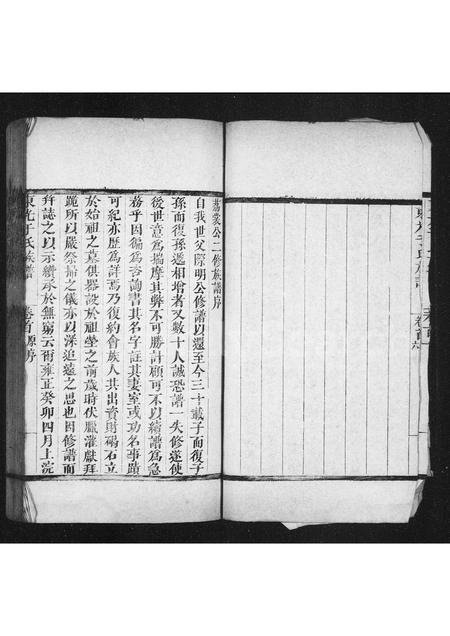 東光于氏族譜
卷首
荔裳公二修族譜序
自我世父際明公修譜以還至今三十載子而復子
孫而復孫遞相增者又數十人誠恐譜一失修遂使
後世意為揣摩其弊不可勝計顧可不以續譜為急
務乎因徧為咨詢書其名字註其妻室或功名事蹟
可紀亦歷為詳焉乃復約會族人共出資財碣石立
於始祖之墓俱器設於祖塋之前歲時伏臘灌獻拜
跪所以嚴祭掃之儀亦以深追遠之思也因修譜而
幷誌之以示續承於無窮云爾雍正癸卯四月上浣
東光于氏族譜
卷首
原序